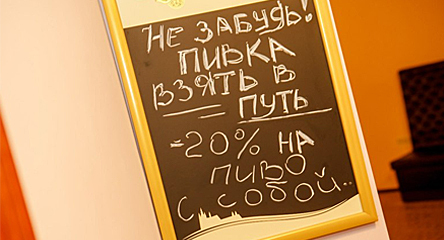 НЕ ЗАБУДЬ!
ПИВКА
ВЗЯТЬ В
ПУТЬ
-20% НА
ПИВО
С СОБОЙ..